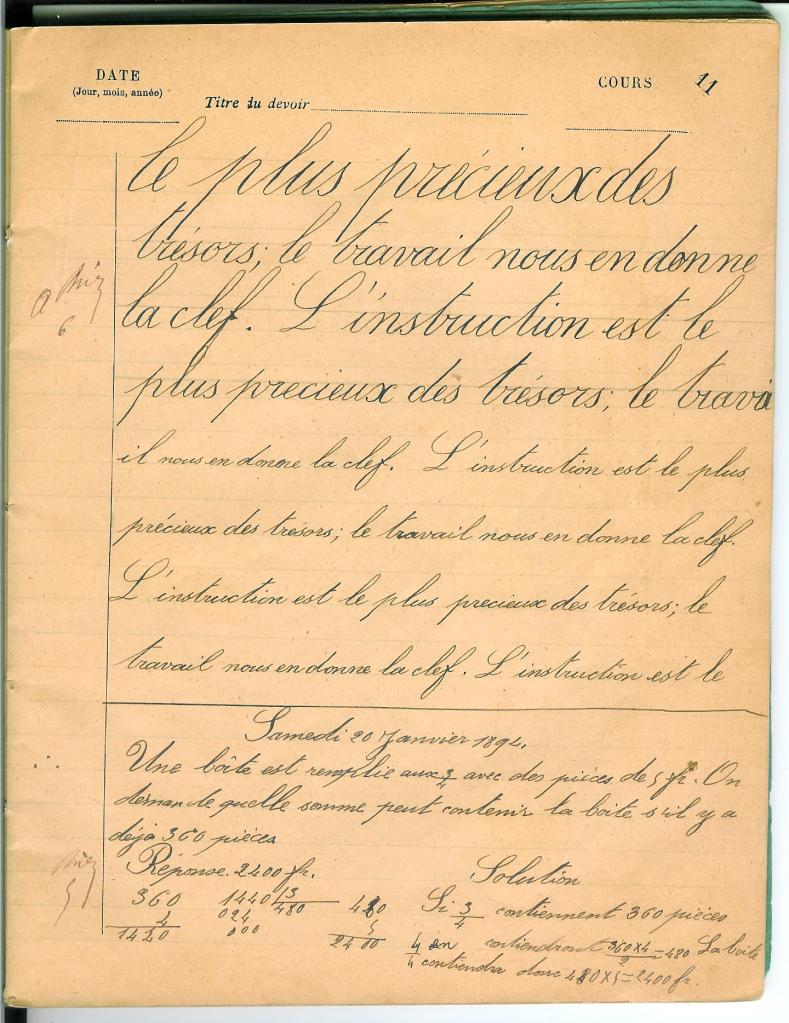 DATE
(Jour, mois, année)
Titre du devoir
COURS 11
le plus précieux des
trésors; le travail nous en donne
la clef. L'instruction est le
plus precieux des trésors; le trava
il nous en donne la clef. L'instruction est le plus
précieux des tresors; le travail nous en donne la clef.
L'instruction est le plus precieux des trésors; le
travail nous en donne la clef. L'instruction est le
6
Samedi 20 Janvier 1894.
Une boîte est remplie aux 3/4 avec des pièces de 5 fr. On
demande quelle somme peut contenir la boite s'il y a
déjà 360 pièces
Réponse. 2400 fr.
Solution
360 1440 3 480
4 024 480 5
1440 000 2400
Si 3/4 contiennent 360 pièces
4/4 en contiendront 360×4/3=480 La boite
contiendra donc 480×5=2400 fr.
5